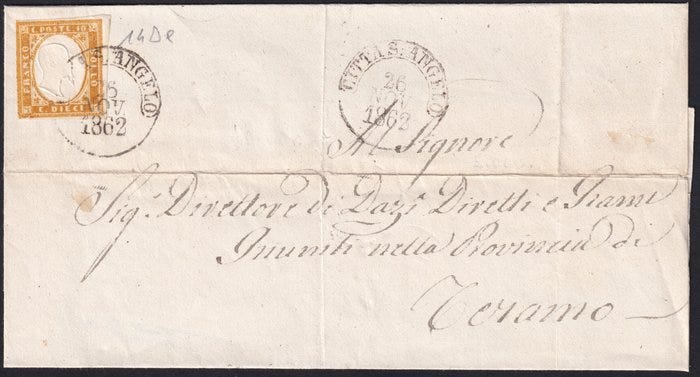 C. POSTE. 10
FRANCO
BOLLO
C. DIECI
S. ANGELO
26
NOV
1862
14De
CITTA S. ANGELO
26
NOV
1862
Al Signore
Sig.r Direttore di Dazi Diretti e
nella Provincia di
Teramo